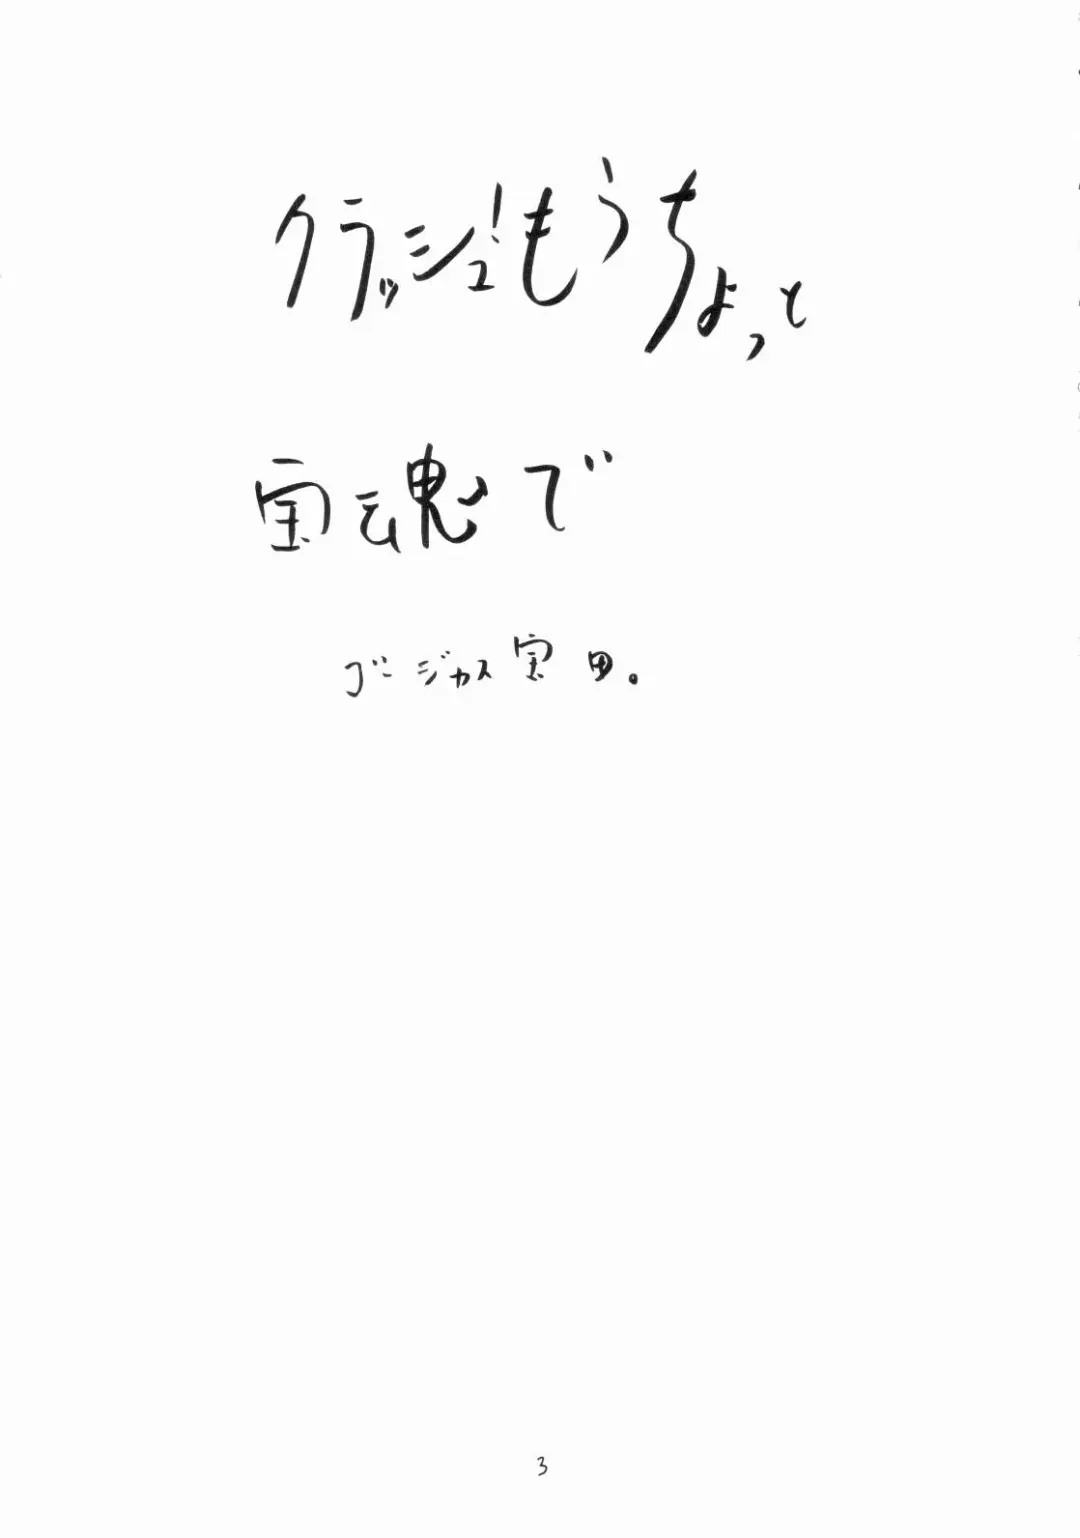 クラッシュ!もうちょっと
宝魂で
ゴージャス宝田。
3